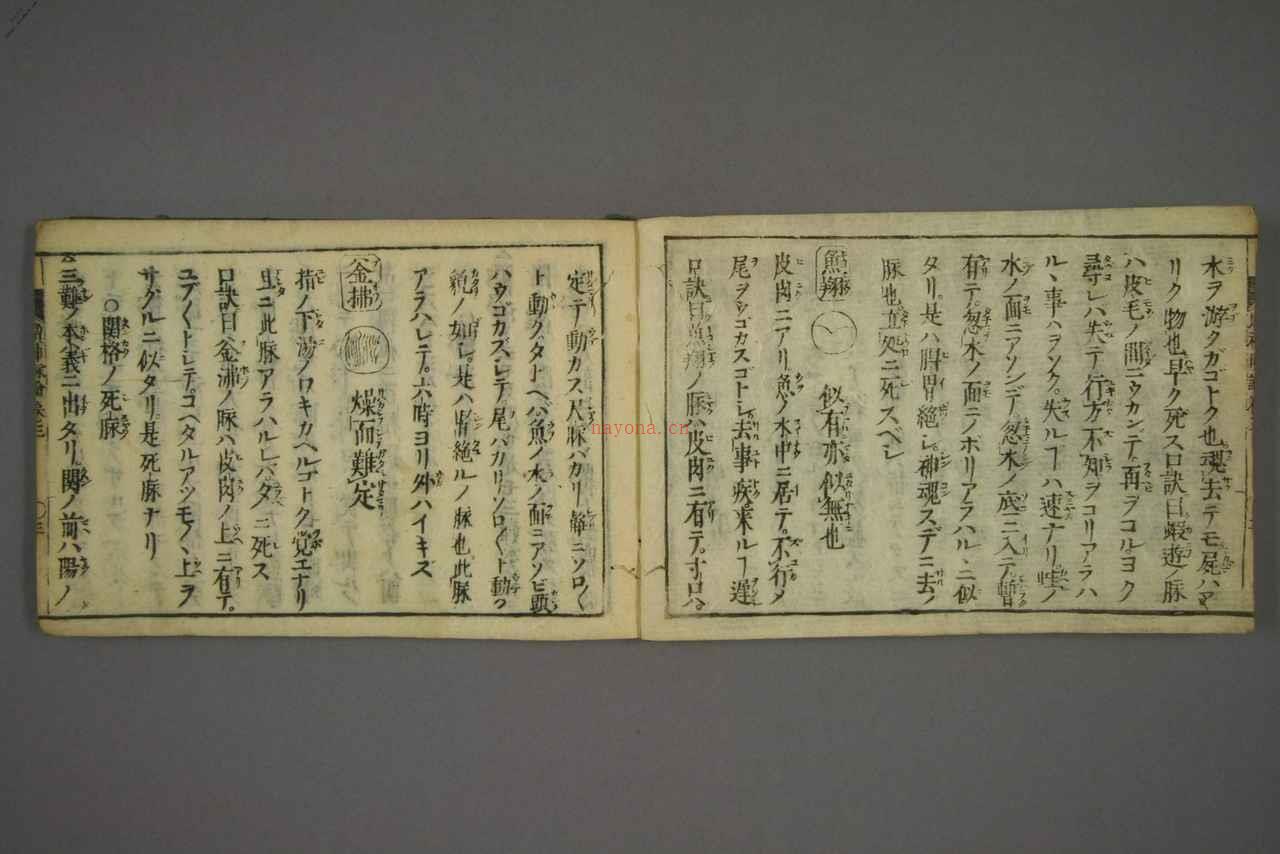 水ヲ游クガコトク也魂去テモ屍ハマ
リク物也早ク死ス口訣曰蝦遊ノ脉
ハ皮毛ノ間ニウカンデ再ヲコルヨク
尋レバ失テ行方不知ヲコリアラハ
ルヽ事ハヲソク失ルヿハ速ナリ蛙ノ
水ノ面ニアソンデ忽水ノ底ニ入テ暫
有テ忽水ノ面ニノボリアラハルヽニ似
タリ是ハ脾胃絶シ神魂スデニ去ノ
脉也立処ニ死スベシ
魚翔 似有亦似無也
皮肉ニアリ魚ノ水中ニ居テ不行メ
尾ヲウゴカスゴトシ去事疾来ルヿ遅
口訣曰魚翔ノ脉ハ皮肉ニ有テ寸口ハ
定テ動カス尺脉バカリ静ニソロ〱
ト動クタトヘバ魚ノ水ノ面ニアソビ頭
ハウゴカズシテ尾バカリソロ〱ト動ク
貌ノ如シ是ハ腎絶ルノ脉也此脉
アラハレテ六時ヨリ外ハイキズ
釜沸 燥而難定
指ノ下湯ノロキカヘルコトク覚エナリ
里ニ此脉アラハルレバタニ死ス
口訣曰釜沸ノ脉ハ皮肉ノ上ニ有テ
ユブ〱トシテコヘタルアツモノヽ上ヲ
サグルニ似タリ是死脉ナリ
○関格ノ死脉
三難ノ本義ニ出タリ関ノ前ハ陽ノ
nayona.cn